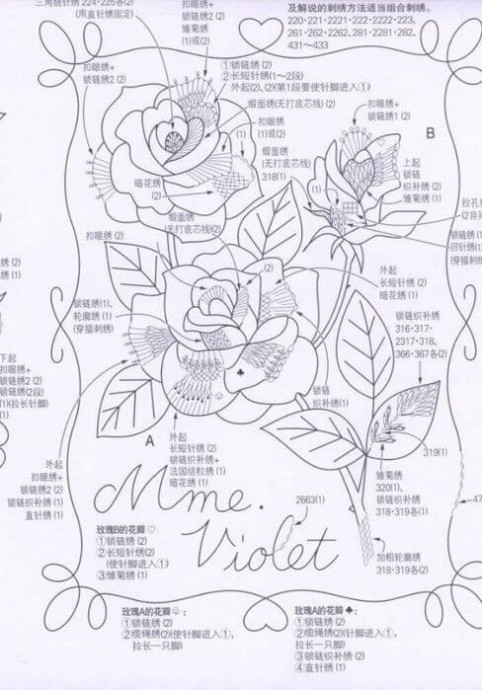 三角绕针绣 224·225各(2)
(用直针绣固定)
扣眼绣+
锁链绣2 (2)
雏菊绣
(1)或(2)
及解说的刺绣方法适当组合刺绣。
220·221·2221·222·2222·223、
261·262·2262、2281·2281·282、
431~433
扣眼绣+
锁链绣2 (2)
①锁链绣 (2)
②长短针绣(1~2段)
外起(2)、(2)(第1段要使针脚进入①)
缎面绣(无打底芯线) (2)
扣眼绣
(1)或(2)
(1)
缎面绣
(无打底芯线)
318(1)
扣眼绣+
锁链绣1 (2)
B
上起
锁链
织补绣 (2)
雏菊绣 (1)
(1)
暗花绣
(2)
缎面绣
(无打底芯线)(2)
扣眼绣 (2)
(2)
拉孔
(2目
锁链绣
回针绣(1)
(穿插刺绣)
外起
长短针绣 (2)
暗花绣 (1)
锁链绣(1)、
轮廓绣 (1)
(穿插刺绣)
锁链织补绣
316·317·
2317·318、
366·367各(2)
绣 (2)
绣 (1)
下起
扣眼绣+
锁链绣2 (2)
锁链绣(2段)
(1)(拉长针脚)
(1)
锁链
织补绣(1)
A
外起
长短针绣 (2)
锁链织补绣+
法国结粒绣 (1)
暗花绣 (1)
外起
扣眼绣+
锁链绣2 (2)
锁链织补绣 (1)
直针绣 (1)
319(1)
雏菊绣
320(1)、
锁链织补绣
318·319各(1)
47
Mme.
Violet
2663(1)
加粗轮廓绣
318·319各(2)
玫瑰B的花瓣♡:
①锁链绣 (2)
②长短针绣(2)
(使针脚进入①)
③雏菊绣 (1)
玫瑰A的花瓣♧:
①锁链绣 (2)
②缆绳绣(2)(使针脚进入①、
拉长一只脚)
玫瑰A的花瓣♣:
①锁链绣 (2)
②缆绳绣(2)(针脚进入①、
拉长一只脚)
③锁链织补绣 (2)
④直针绣 (1)